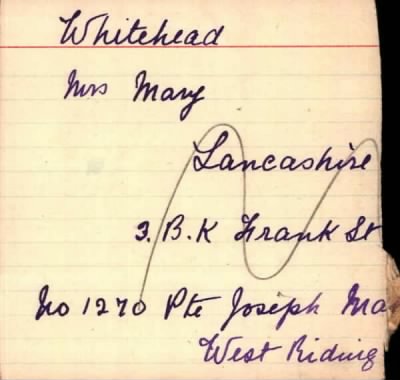 Whitehead
Mrs Mary
Lancashire
3. B.K Frank St
No 1270 Pte Joseph Ma
West Riding